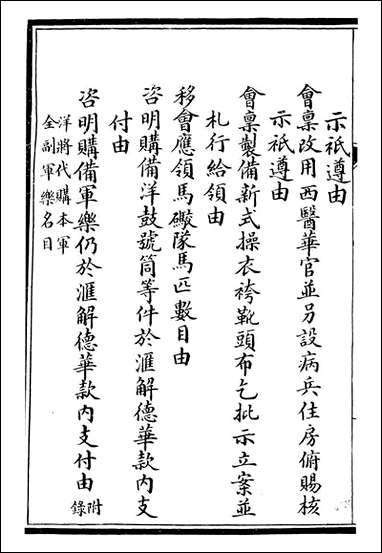 示祇遵由
會稟改用西醫華官並另設病兵住房俯賜核
示祇遵由
會稟製備新式操衣袴靴頭布乞批示立案並
札行給領由
移會應領馬礮隊馬匹數目由
咨明購備洋鼓號筒等件於滙解德華款內支
付由
咨明購備軍樂仍於滙解德華款內支付由附錄
洋將代購本軍
全副軍樂名目